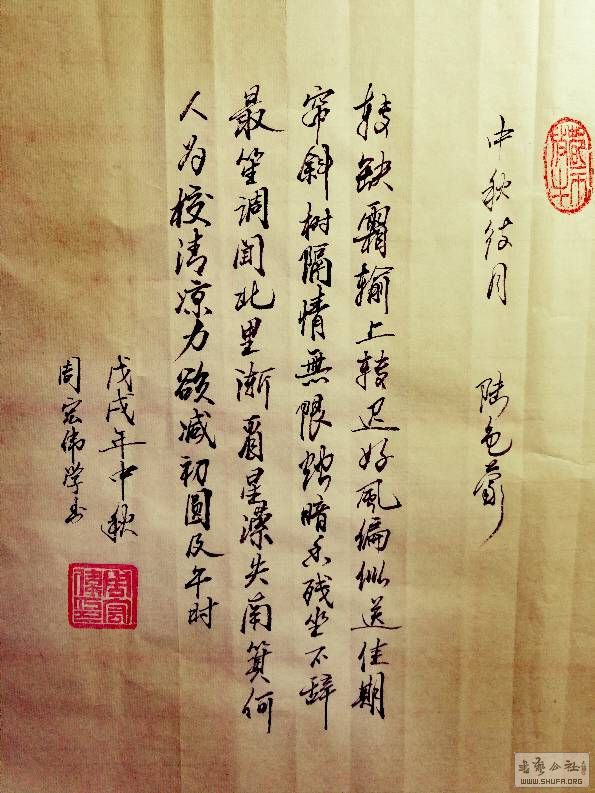 中秋待月 陆龟蒙
转缺霜輪上转迟好風偏似送佳期
帘斜树隔情無限烛暗香残坐不辞
最笙调闻北里渐看星澹失南箕何
人为校清凉力欲减初圆及午时
戊戌年中秋
周宏伟学书
周宏伟印
书艺公社
WWW.SHUFA.ORG